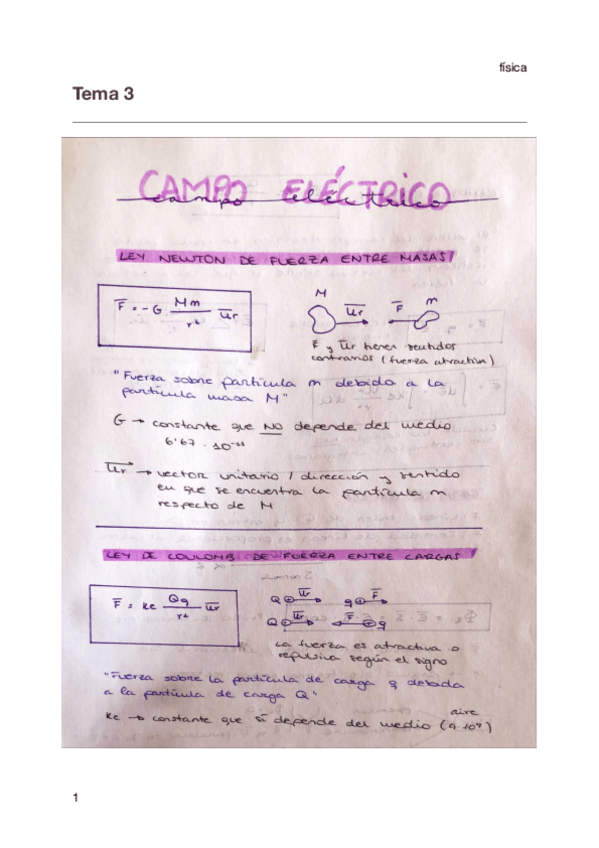 física
Tema 3
CAMPO ELÉCTRICO
campo eléctrico
LEY NEWTON DE FUERZA ENTRE MASAS
F = - G Mm / r² Ur
M Ur F m
F y Ur tienen sentidos
contrarios (fuerza atractiva)
"Fuerza sobre partícula m debido a la
partícula masa M"
G → constante que NO depende del medio
6'67 · 10⁻¹¹
Ur → vector unitario / dirección y sentido
en que se encuentra la partícula m
respecto de M
LEY DE COULOMB DE FUERZA ENTRE CARGAS
F = Ke Qq / r² Ur
Q Ur q F
Q Ur F q
La fuerza es atractiva o
repulsiva según el signo
"Fuerza sobre la partícula de carga q debida
a la partícula de carga Q"
aire
Ke → constante que sí depende del medio (9·10⁹)
1